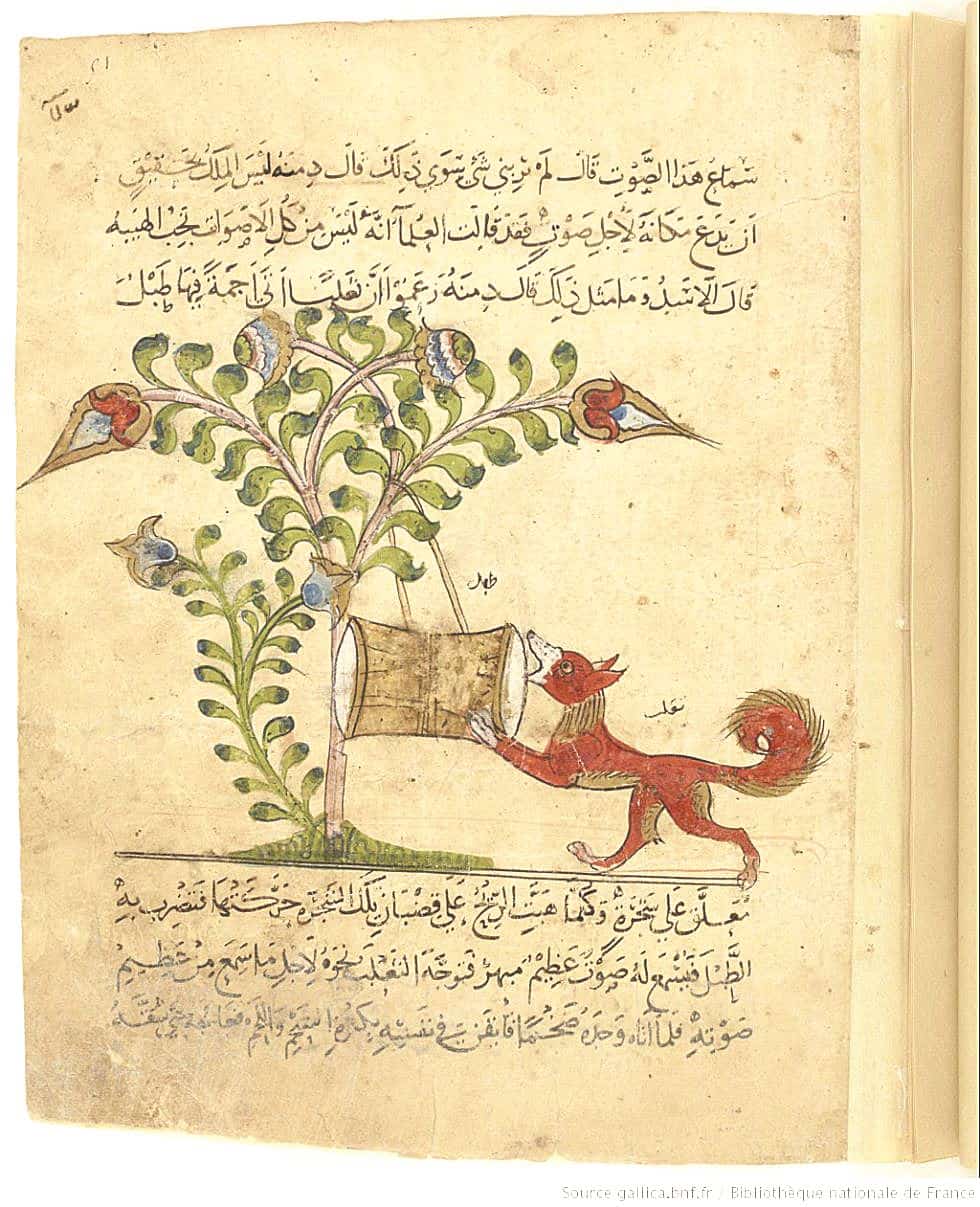 سماع هذا الصَّوْت قال لم يربني شئ سوى ذلك قال دمنه ليس الملك بحقيق
ان يدع مكانه لأجل صوت فقد قالت العلماء انه ليس من كل الاصوات تجب الهيبه
قال الاسد وما مثل ذلك قال دمنه زعموا ان ثعلبا اتى اجمة فيها طبل
طبل
ثعلب
معلق على شجرة وكلما هبت الريح على قضبان تلك الشجرة حركتها فتضرب به
الطبل فيسمع له صوت عظيم مبهر فتوجه الثعلب نحوه لاجل ما سمع من عظيم
صوته فلما اتاه وجده ضخما فايقن في نفسه بكثرة الشحم واللحم فعالجه حتى شقه
Source gallica.bnf.fr / Bibliothèque nationale de France